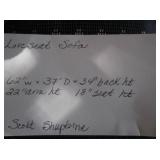 Loveseat Sofa
62"w x 37"D x 34" back ht
22" arm ht 18" seat ht
Scott Shuptrine